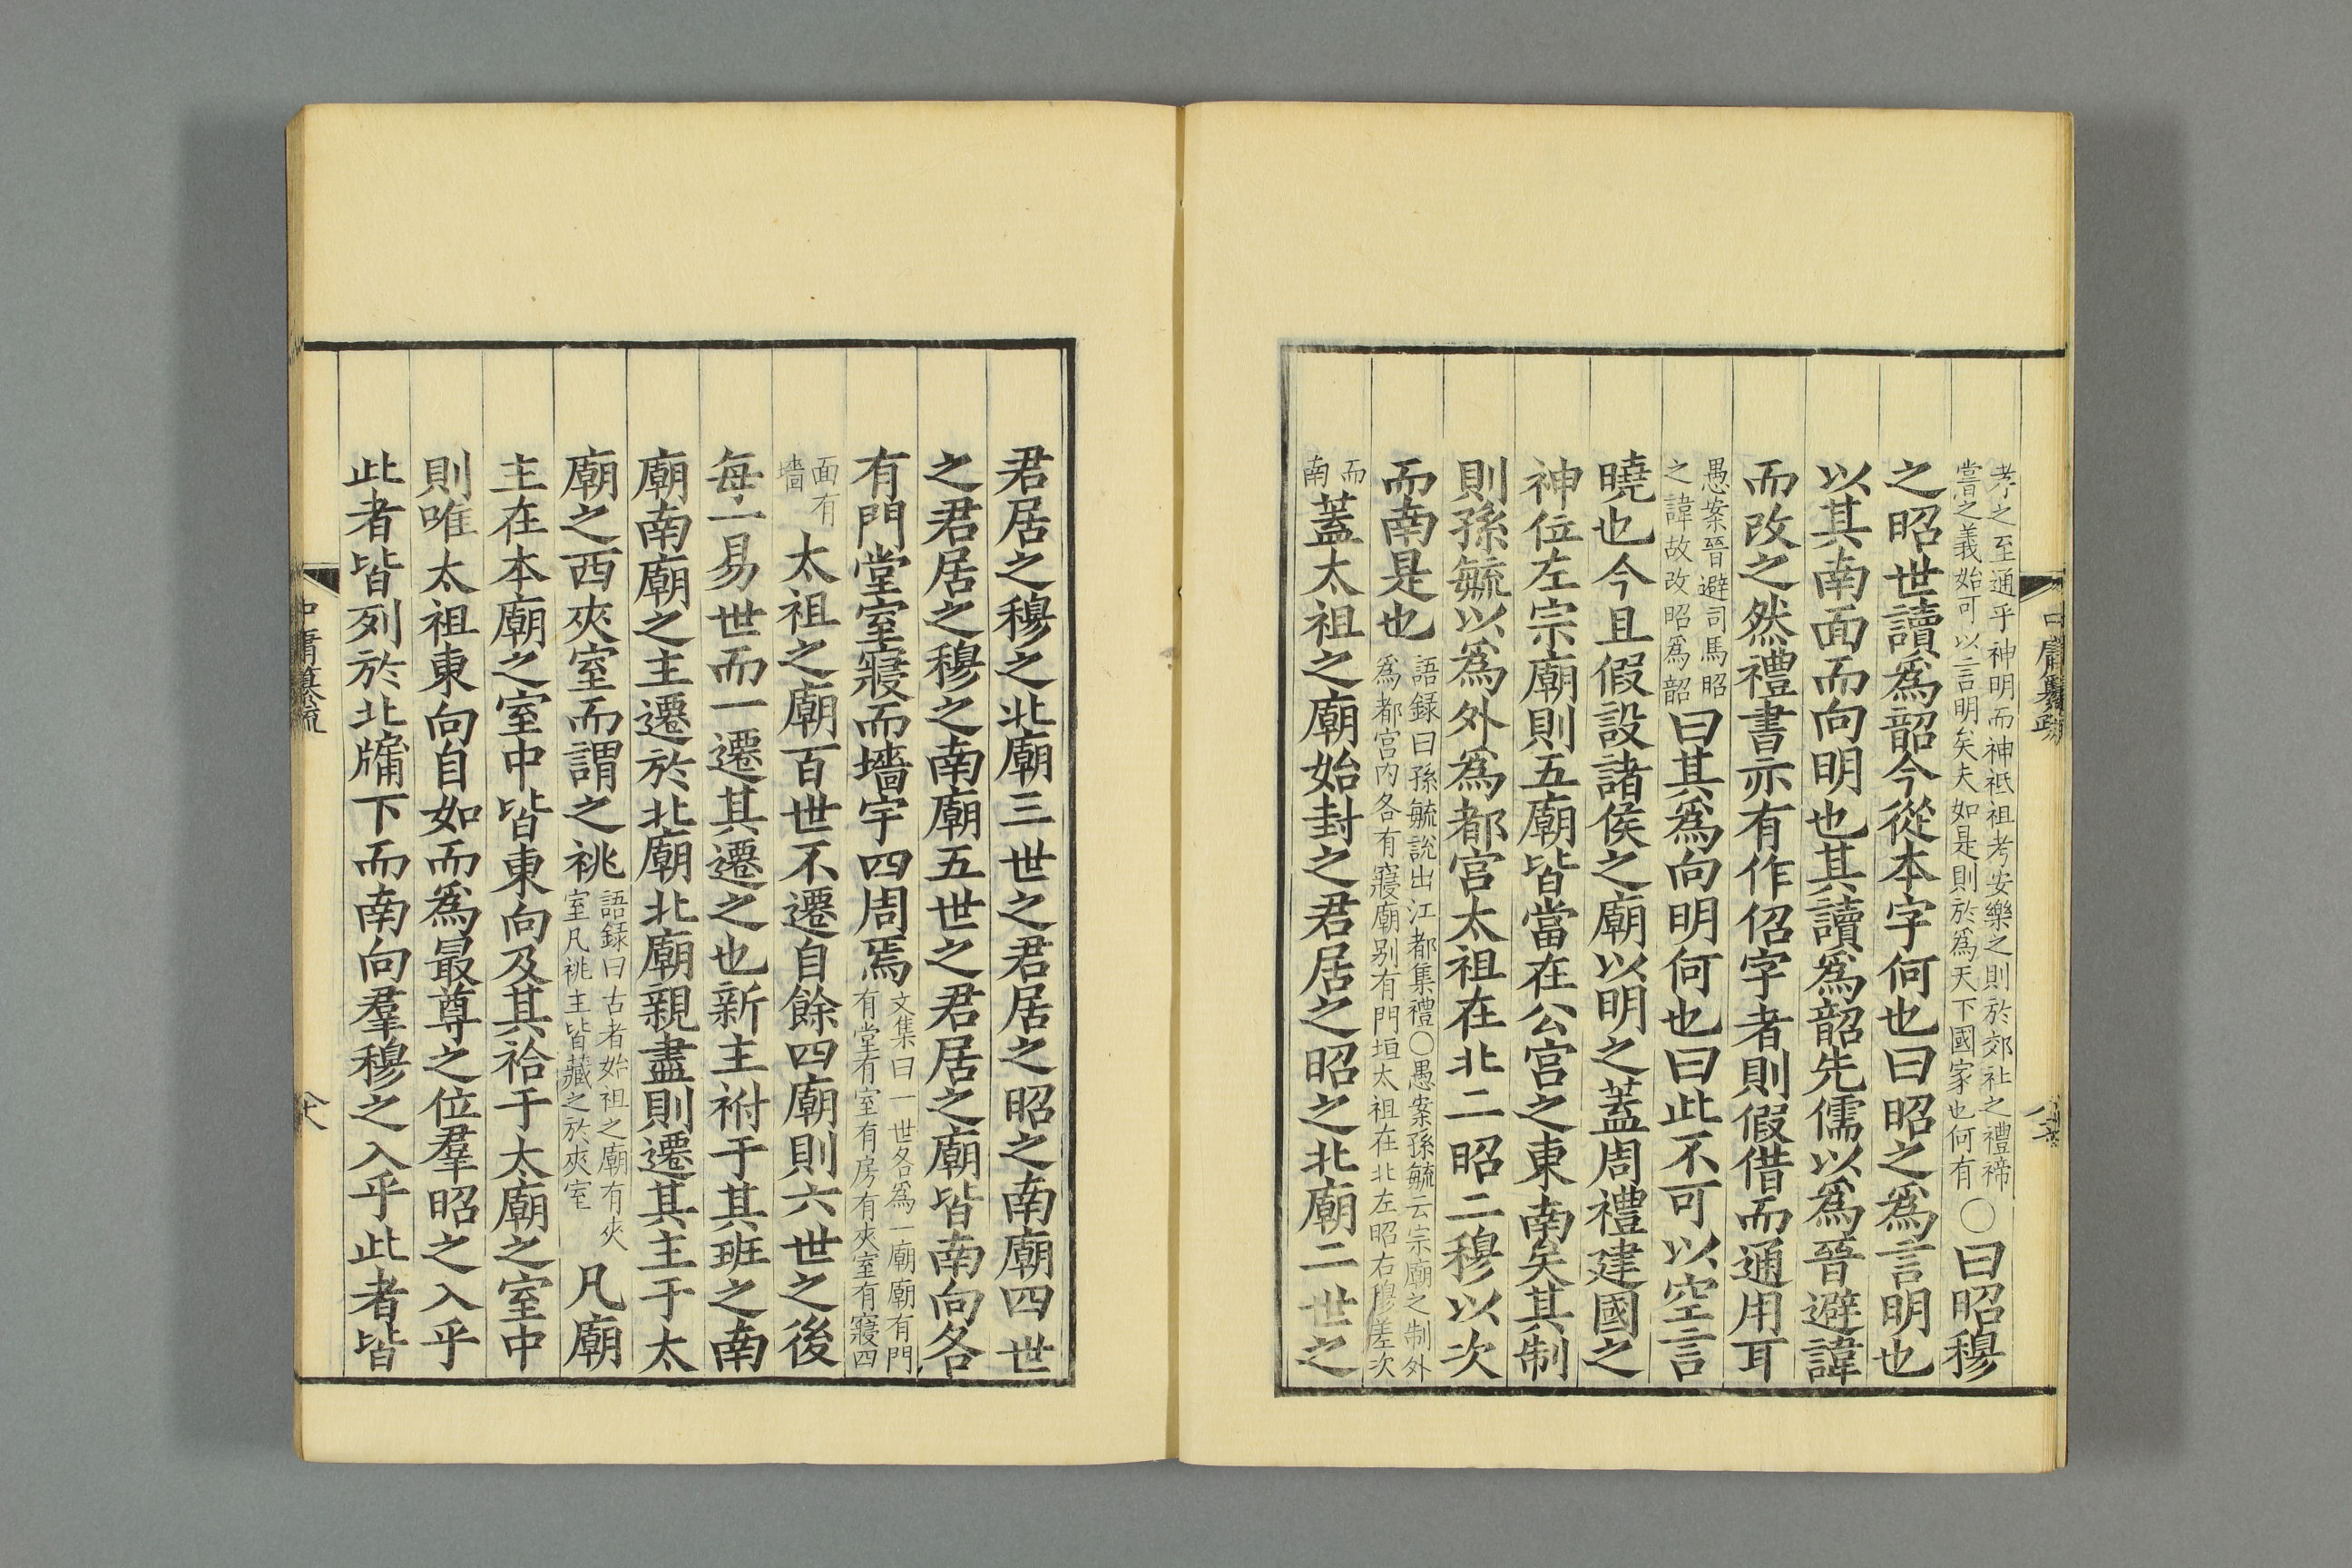 孝之至通乎神明而神祗祖考安樂之則於郊社之禮禘
嘗之義始可以言明矣夫如是則於爲天下國家也何有
○曰昭穆
之昭世讀爲韶今從本字何也曰昭之爲言明也
以其南面而向明也其讀爲韶先儒以爲晉避諱
而改之然禮書亦有作佋字者則假借而通用耳
愚案晉避司馬昭
之諱故改昭爲韶
曰其爲向明何也曰此不可以空言
曉也今且假設諸侯之廟以明之蓋周禮建國之
神位左宗廟則五廟皆當在公宫之東南矣其制
則孫毓以爲外爲都宫太祖在北二昭二穆以次
而南是也
語録曰孫毓説出江都集禮○愚案孫毓云宗廟之制外
爲都宫内各有寢廟别有門垣太祖在北左昭右穆差次
而
南
蓋太祖之廟始封之君居之昭之北廟二世之
君居之穆之北廟三世之君居之昭之南廟四世
之君居之穆之南廟五世之君居之廟皆南向各
有門堂室寢而墻宇四周焉
文集曰一世各爲一廟廟有門
有堂有室有房有夾室有寢四
面有
墻
太祖之廟百世不遷自餘四廟則六世之後
每一易世而一遷其遷之也新主祔于其班之南
廟南廟之主遷於北廟北廟親盡則遷其主于太
廟之西夾室而謂之祧
語録曰古者始祖之廟有夾
室凡祧主皆藏之於夾室
凡廟
主在本廟之室中皆東向及其祫于太廟之室中
則唯太祖東向自如而爲最尊之位羣昭之入乎
此者皆列於北牖下而南向羣穆之入乎此者皆
中庸纂疏